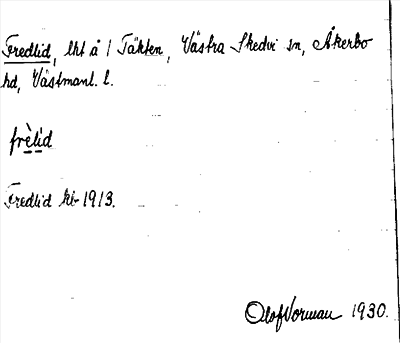 Fredlid, lht å 1 Täkten, Västra Skedvi sn, Åkerbo
hd, Västmanl. l.
frèlid
Fredlid kbr 1913.
Olof Norman 1930.